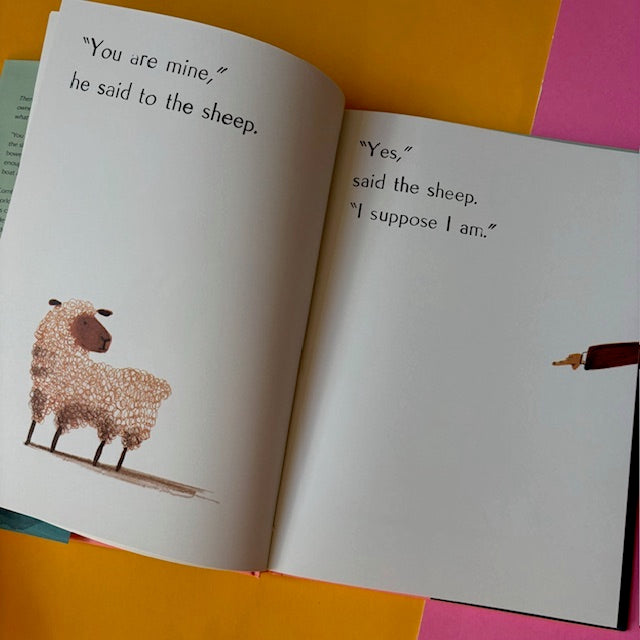 “You are mine,”
he said to the sheep.
“Yes,”
said the sheep.
“I suppose I am.”